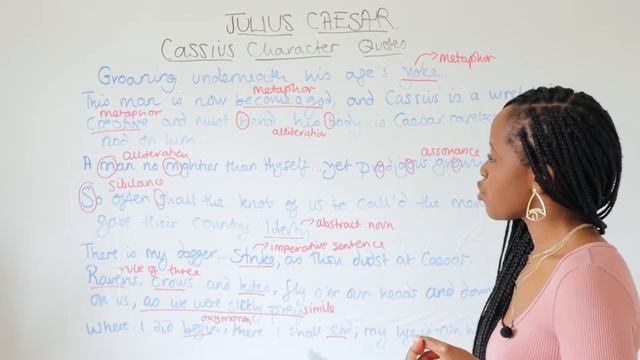 JULIUS CAESAR
Cassius Character Quotes
metaphor
Groaning underneath his age's yoke.
metaphor
This man is now become a god, and Cassius is a
metaphor
creature and must bend his body is Caesar
alliteration
nod on him.
alliteration
assonance
A man no mightier than thyself... yet prodigious
sibilance
So often shall the knot of us be call'd the men
gave their country liberty
abstract noun
imperative sentence
There is my dagger... Strike, as thou didst at Caesar
rule of three
Ravens, crows and kites, fly o'er our heads and
on us, as we were sickly prey
simile
oxymoron
Where I did begin, there I shall end; my life is run